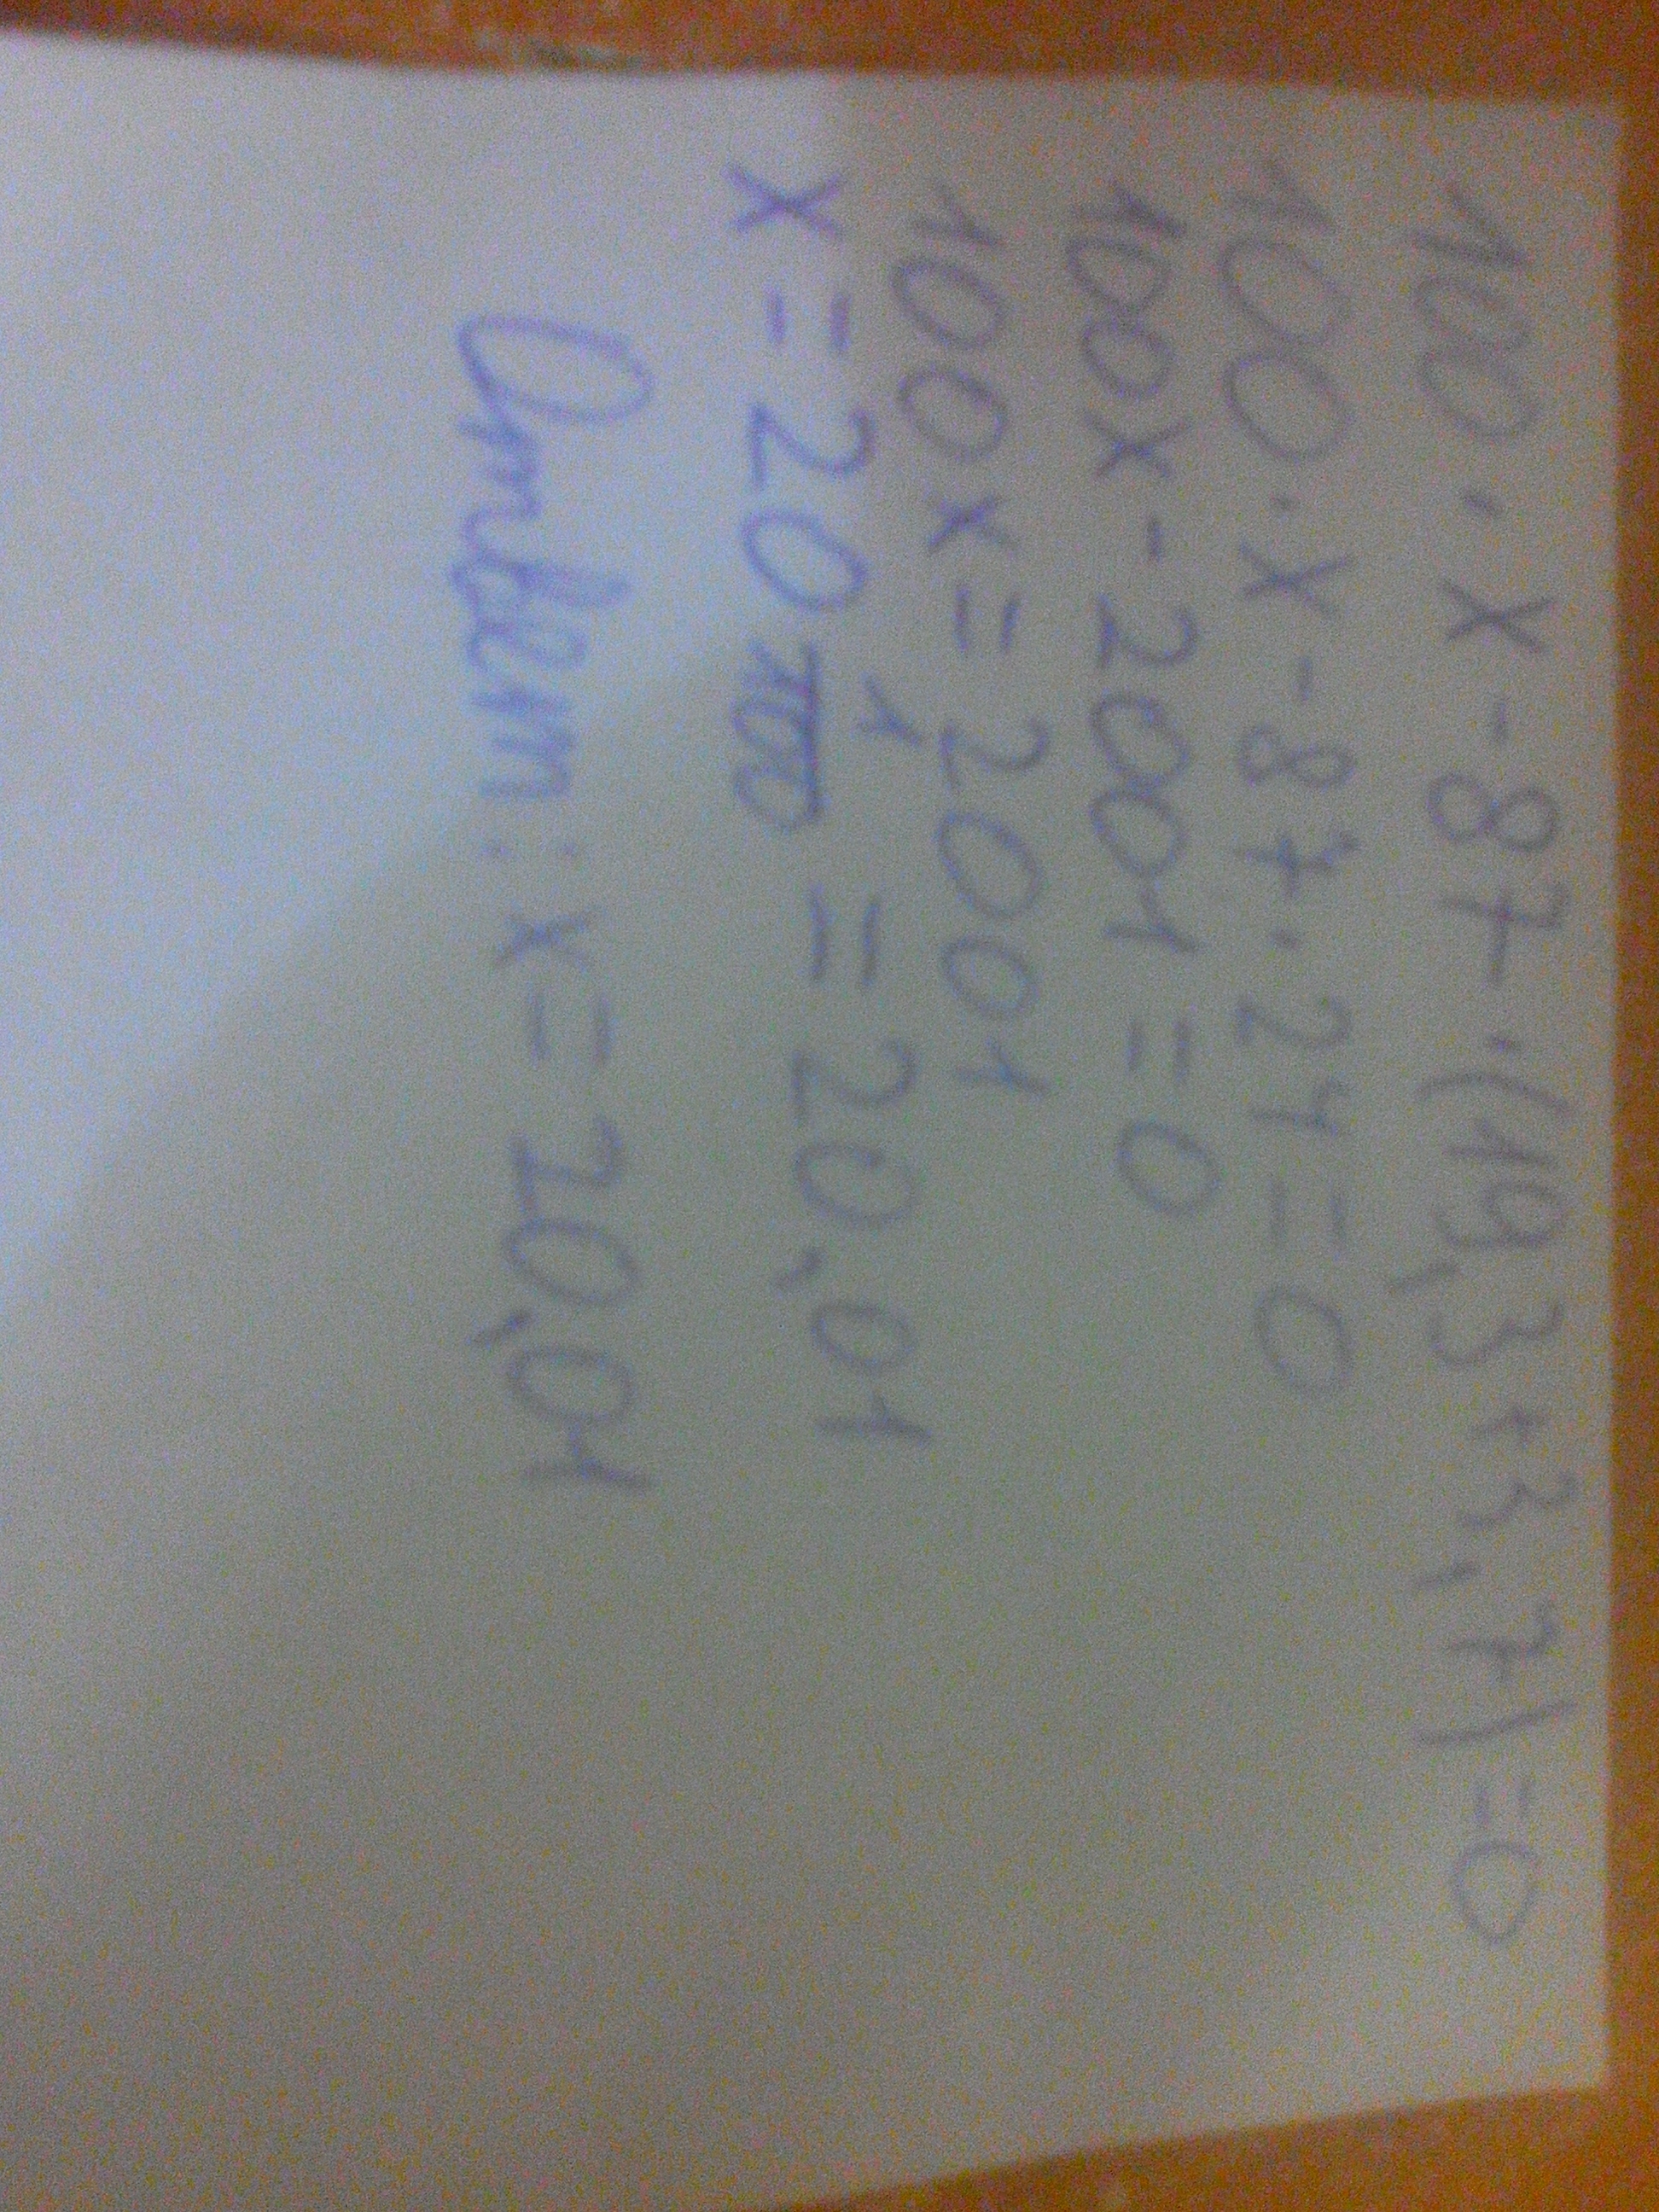 100 · x - 87 · (19,3 + 3,7) = 0
100 · x - 87 · 24 = 0
100x - 2001 = 0
100x = 2001
x = 20 1/100 = 20,01
Ответ: x = 20,01